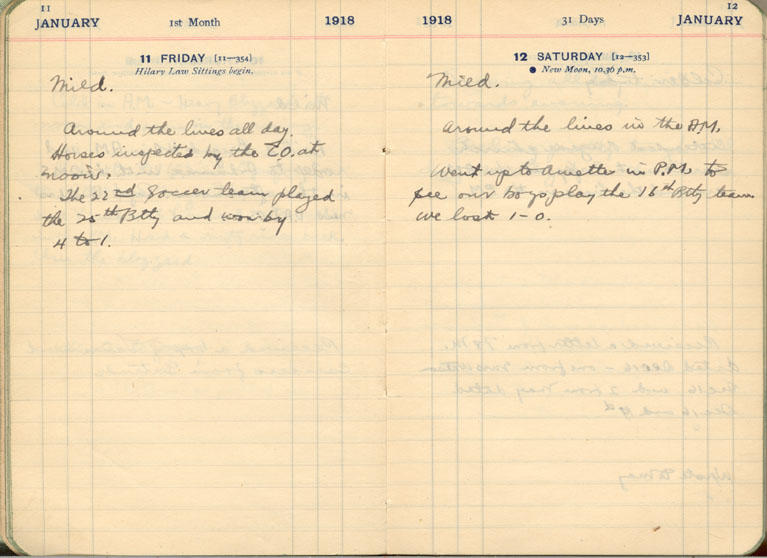 11
JANUARY 1st Month 1918
11 FRIDAY [11—354]
Hilary Law Sittings begin.
Mild.
Around the lines all day.
Horses inspected by the C.O. at
noon.
The 22nd Soccer team played
the 25th Btty and won by
4 to 1.
12
1918 31 Days JANUARY
12 SATURDAY [12—353]
● New Moon, 10.36 p.m.
Mild.
Around the lines in the AM.
Went up to Amettes in P.M. to
see our boys play the 16th Btty team
we lost 1-0.